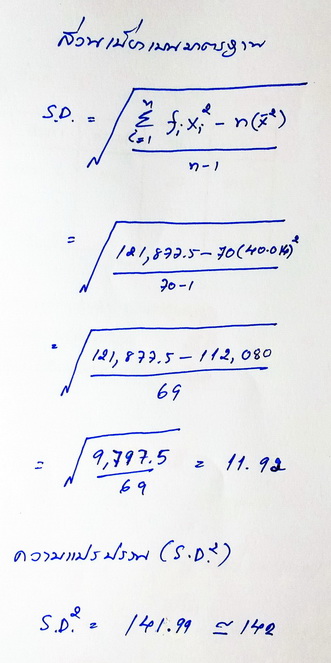 ส่วนเบี่ยงเบนมาตรฐาน
S.D. = √((∑_{i=1}^{n} f_i x_i² - n(x̄²)) / (n-1))
= √((121,877.5 - 70(40.014)²) / (70-1))
= √((121,877.5 - 112,080) / 69)
= √(9,797.5 / 69) = 11.92
ความแปรปรวน (S.D.²)
S.D.² = 141.99 ≃ 142